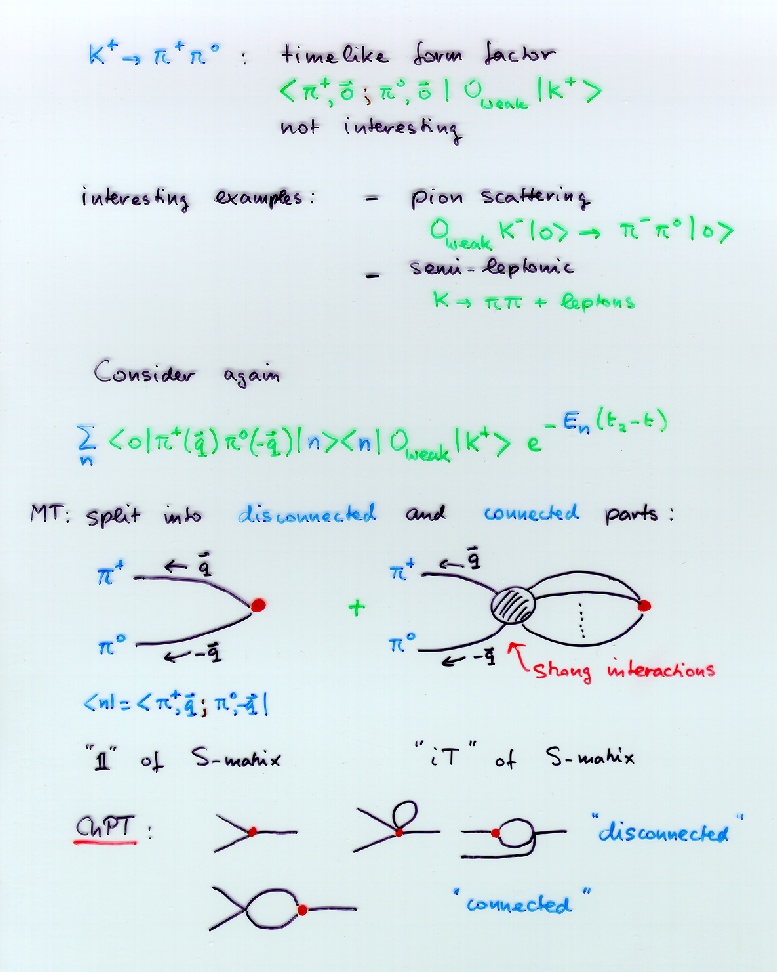 K⁺ → π⁺π⁰ : timelike form factor
<π⁺,0⃗ ; π⁰,0⃗ | O_weak | K⁺>
not interesting
interesting examples: – pion scattering
O_weak K⁻|0> → π⁻π⁰|0>
– semi-leptonic
K → ππ + leptons
Consider again
∑_n <0|π⁺(q⃗) π⁰(-q⃗)|n><n| O_weak |K⁺> e^{-E_n(t₂-t)}
MT: split into disconnected and connected parts:
π⁺ ← q⃗ + π⁺ ← q⃗
π⁰ ← -q⃗ π⁰ ← -q⃗
Strong interactions
<n| = <π⁺,q⃗ ; π⁰,-q⃗|
"1" of S-matrix "iT" of S-matrix
ChPT : "disconnected"
"connected"